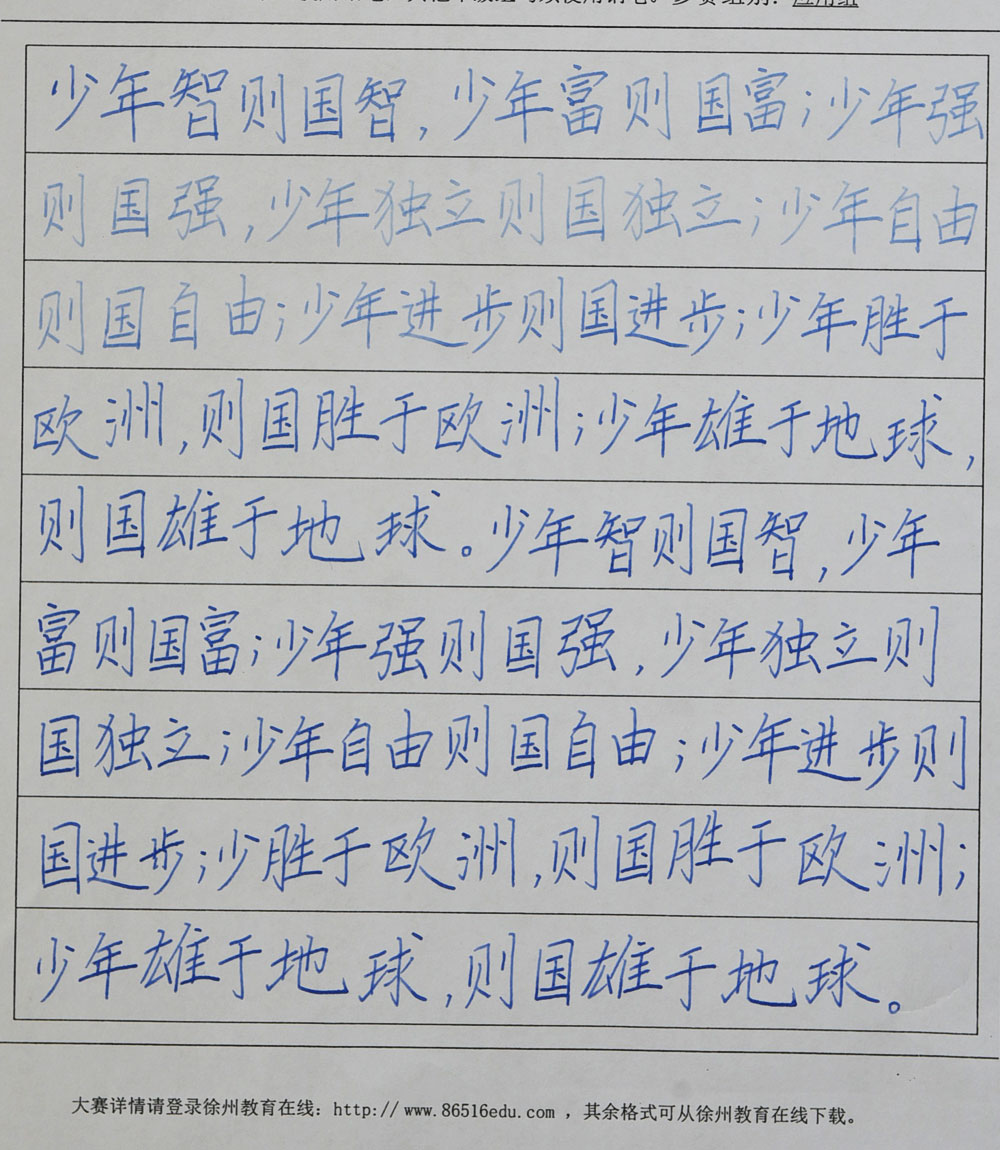 参赛组别：应用组
少年智则国智，少年富则国富；少年强
则国强，少年独立则国独立；少年自由
则国自由；少年进步则国进步；少年胜于
欧洲，则国胜于欧洲；少年雄于地球，
则国雄于地球。少年智则国智，少年
富则国富；少年强则国强，少年独立则
国独立；少年自由则国自由；少年进步则
国进步；少胜于欧洲，则国胜于欧洲；
少年雄于地球，则国雄于地球。
大赛详情请登录徐州教育在线：http://www.86516edu.com，其余格式可从徐州教育在线下载。